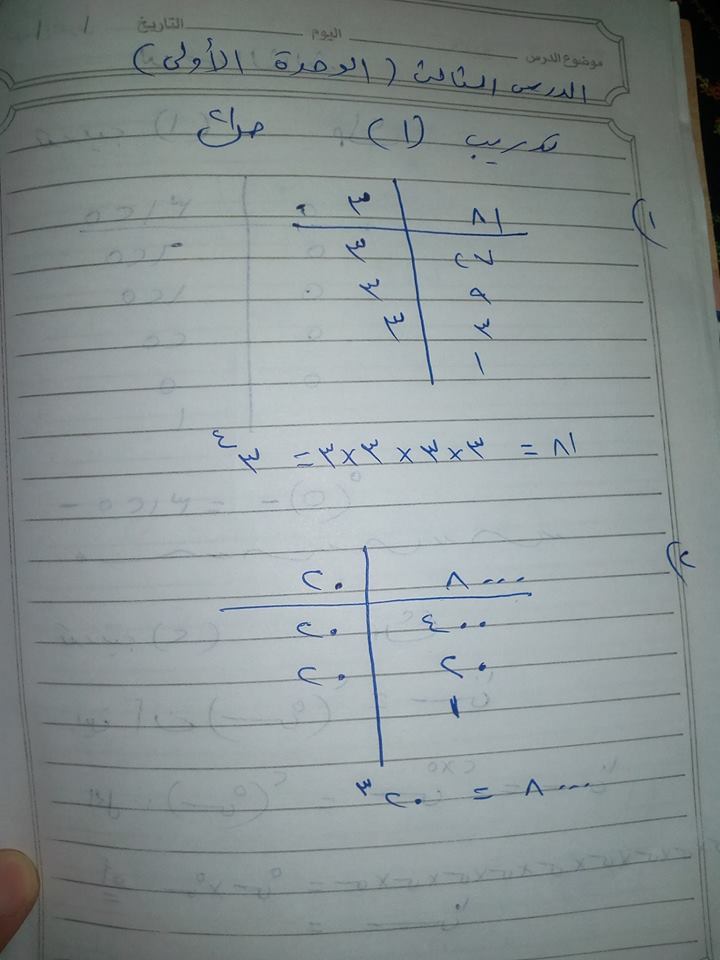 موضوع الدرس اليوم التاريخ / /
الدرس الثالث (الوحدة الأولى)
تدريب (١)
(١
٨١ ٣
٢٧ ٣
٩ ٣
٣ ٣
١
٨١ = ٣×٣×٣×٣ = ٣^٤
(٢
٨٠٠٠ ٢٠
٤٠٠ ٢٠
٢٠ ٢٠
١
٨٠٠٠ = ٢٠^٣